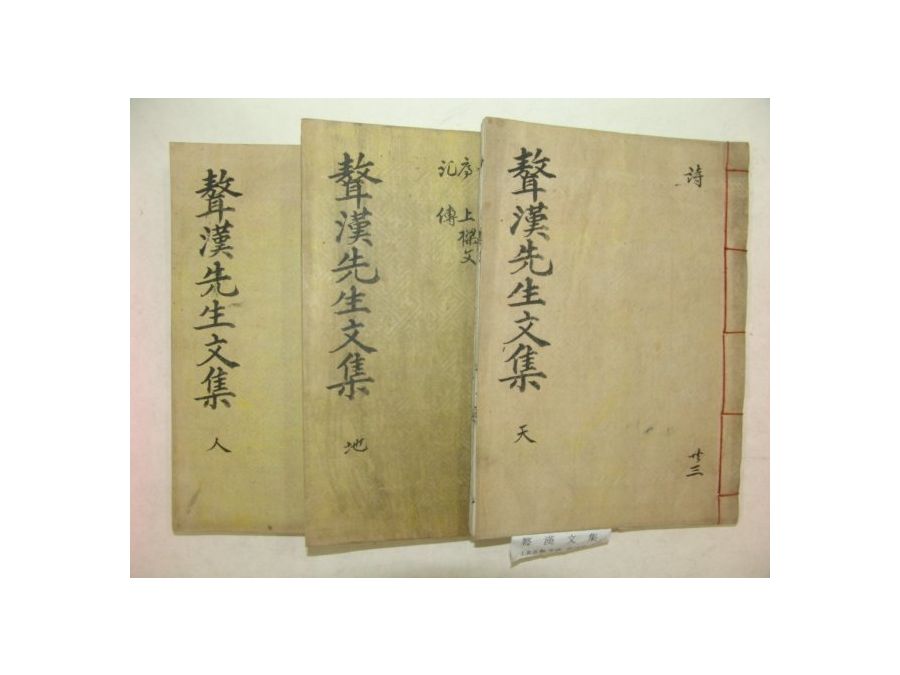 詩
共三
聱漢先生文集
天
序 上樑文
記 傳
聱漢先生文集
地
聱漢先生文集
人
聱漢文集